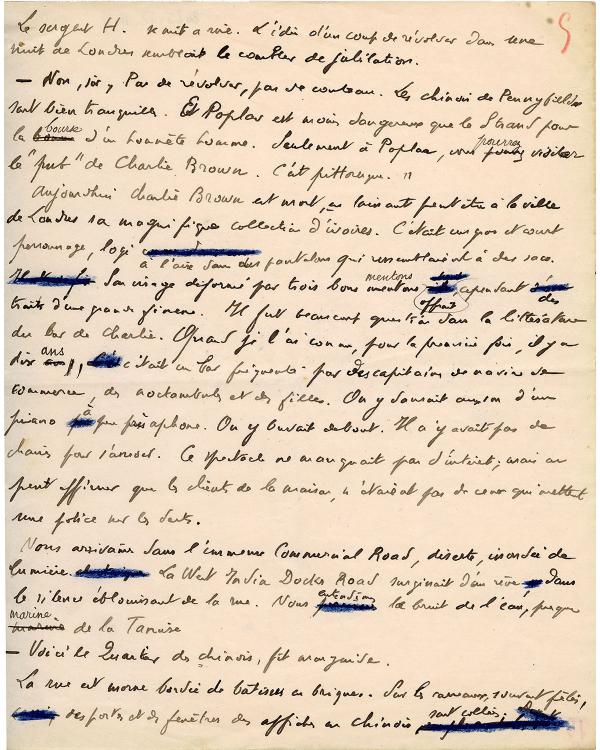 5
Le sergent H. se mit à rire. L'idée d'un coup de révolver dans une
nuit de Londres semblait le combler de jubilation.
— Non, sir, Pas de révolver, pas de couteau. Les chinois de Pennyfields
sont bien tranquilles. Et Poplar est moins dangereux que le Strand pour
la bourse d'un honnête homme. Seulement à Poplar, vous pourrez visiter
le "pub" de Charlie Brown. C'est pittoresque. "
Aujourd'hui Charlie Brown est mort, en laissant peut être à la ville
de Londres sa magnifique collection d'ivoires. C'était un gros et court
personnage, logé
à l'aise dans des pantalons qui ressemblaient à des sacs.
Son visage déformé par trois bons mentons offrait cependant des
traits d'une grande finesse. Il fut beaucoup question dans la littérature
du bar de Charlie. Quand je l'ai connu, pour la première fois, il y a
dix ans, c'était un bar fréquenté par des capitaines de navire de
commerce, des noctambules et des filles. On y dansait au son d'un
piano à
On y buvait debout. Il n'y avait pas de
chaises pour s'asseoir. Ce spectacle ne manquait pas d'intérêt; mais on
peut affirmer que les clients de la maison, n'étaient pas de ceux qui mettent
une police sur les dents.
Nous arrivâmes dans l'immense Commercial Road, déserte, inondée de
lumière. La West India Docks Road surgissait d'un rêve dans
le silence éblouissant de la rue. Nous entendîmes le bruit de l'eau, presque
marine de la Tamise
— Voici le Quartier des chinois, fit mon guide.
La rue est morne bordée de bâtisses en briques. Sur les
des portes et des fenêtres des affiches en chinois sont collées;